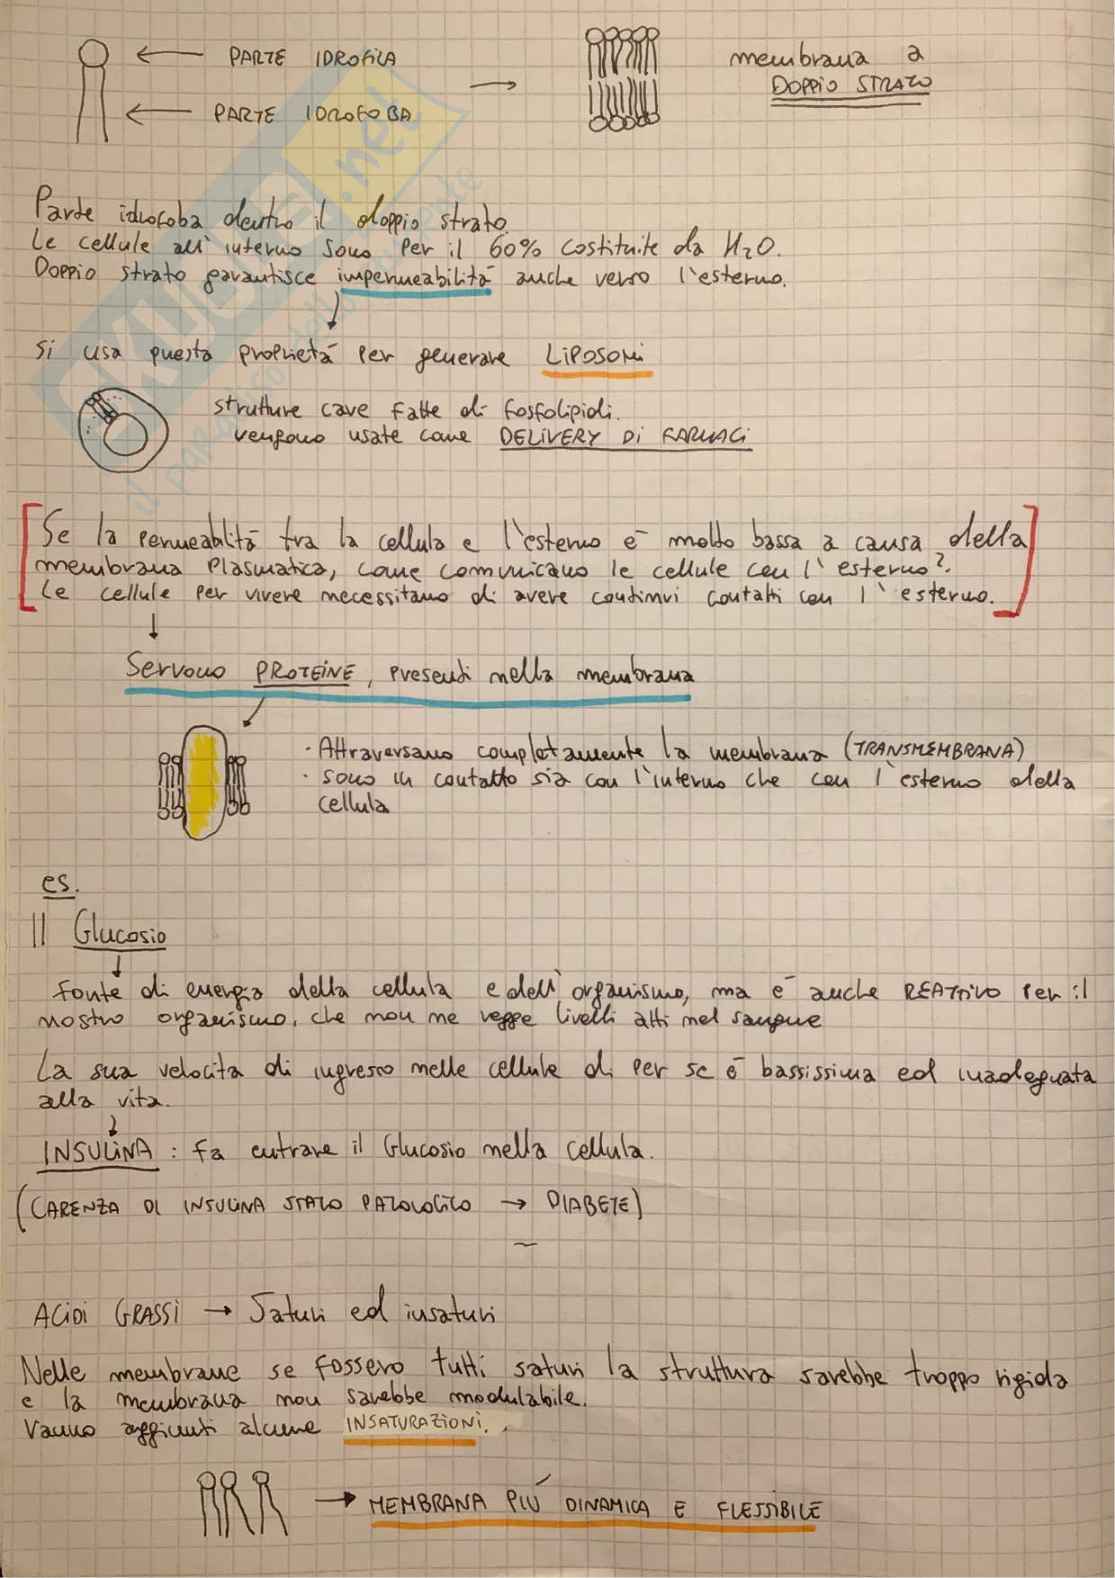 PARTE IDROFILA
PARTE IDROFOBA
membrana a
DOPPIO STRATO
Parte idrofoba dentro il doppio strato.
Le cellule all'interno sono per il 60% costituite da H₂O.
Doppio strato garantisce impermeabilità anche verso l'esterno.
Si usa questa proprietà per generare LIPOSOMI
strutture cave fatte di fosfolipidi.
vengono usate come DELIVERY DI FARMACI
[Se la permeabilità tra la cellula e l'esterno è molto bassa a causa della
membrana plasmatica, come comunicano le cellule con l'esterno?
Le cellule per vivere necessitano di avere continui contatti con l'esterno.]
Servono PROTEINE, presenti nella membrana
· Attraversano completamente la membrana (TRANSMEMBRANA)
· sono in contatto sia con l'interno che con l'esterno della
cellula
es.
Il Glucosio
fonte di energia della cellula e dell'organismo, ma è anche REATTIVO per il
nostro organismo, che non ne regge livelli alti nel sangue
La sua velocità di ingresso nelle cellule di per se è bassissima ed inadeguata
alla vita.
INSULINA : fa entrare il Glucosio nella cellula.
(CARENZA DI INSULINA STATO PATOLOGICO → DIABETE)
~
ACIDI GRASSI → Saturi ed insaturi
Nelle membrane se fossero tutti saturi la struttura sarebbe troppo rigida
e la membrana non sarebbe modulabile.
Vanno aggiunti alcune INSATURAZIONI.
→ MEMBRANA PIÙ DINAMICA E FLESSIBILE